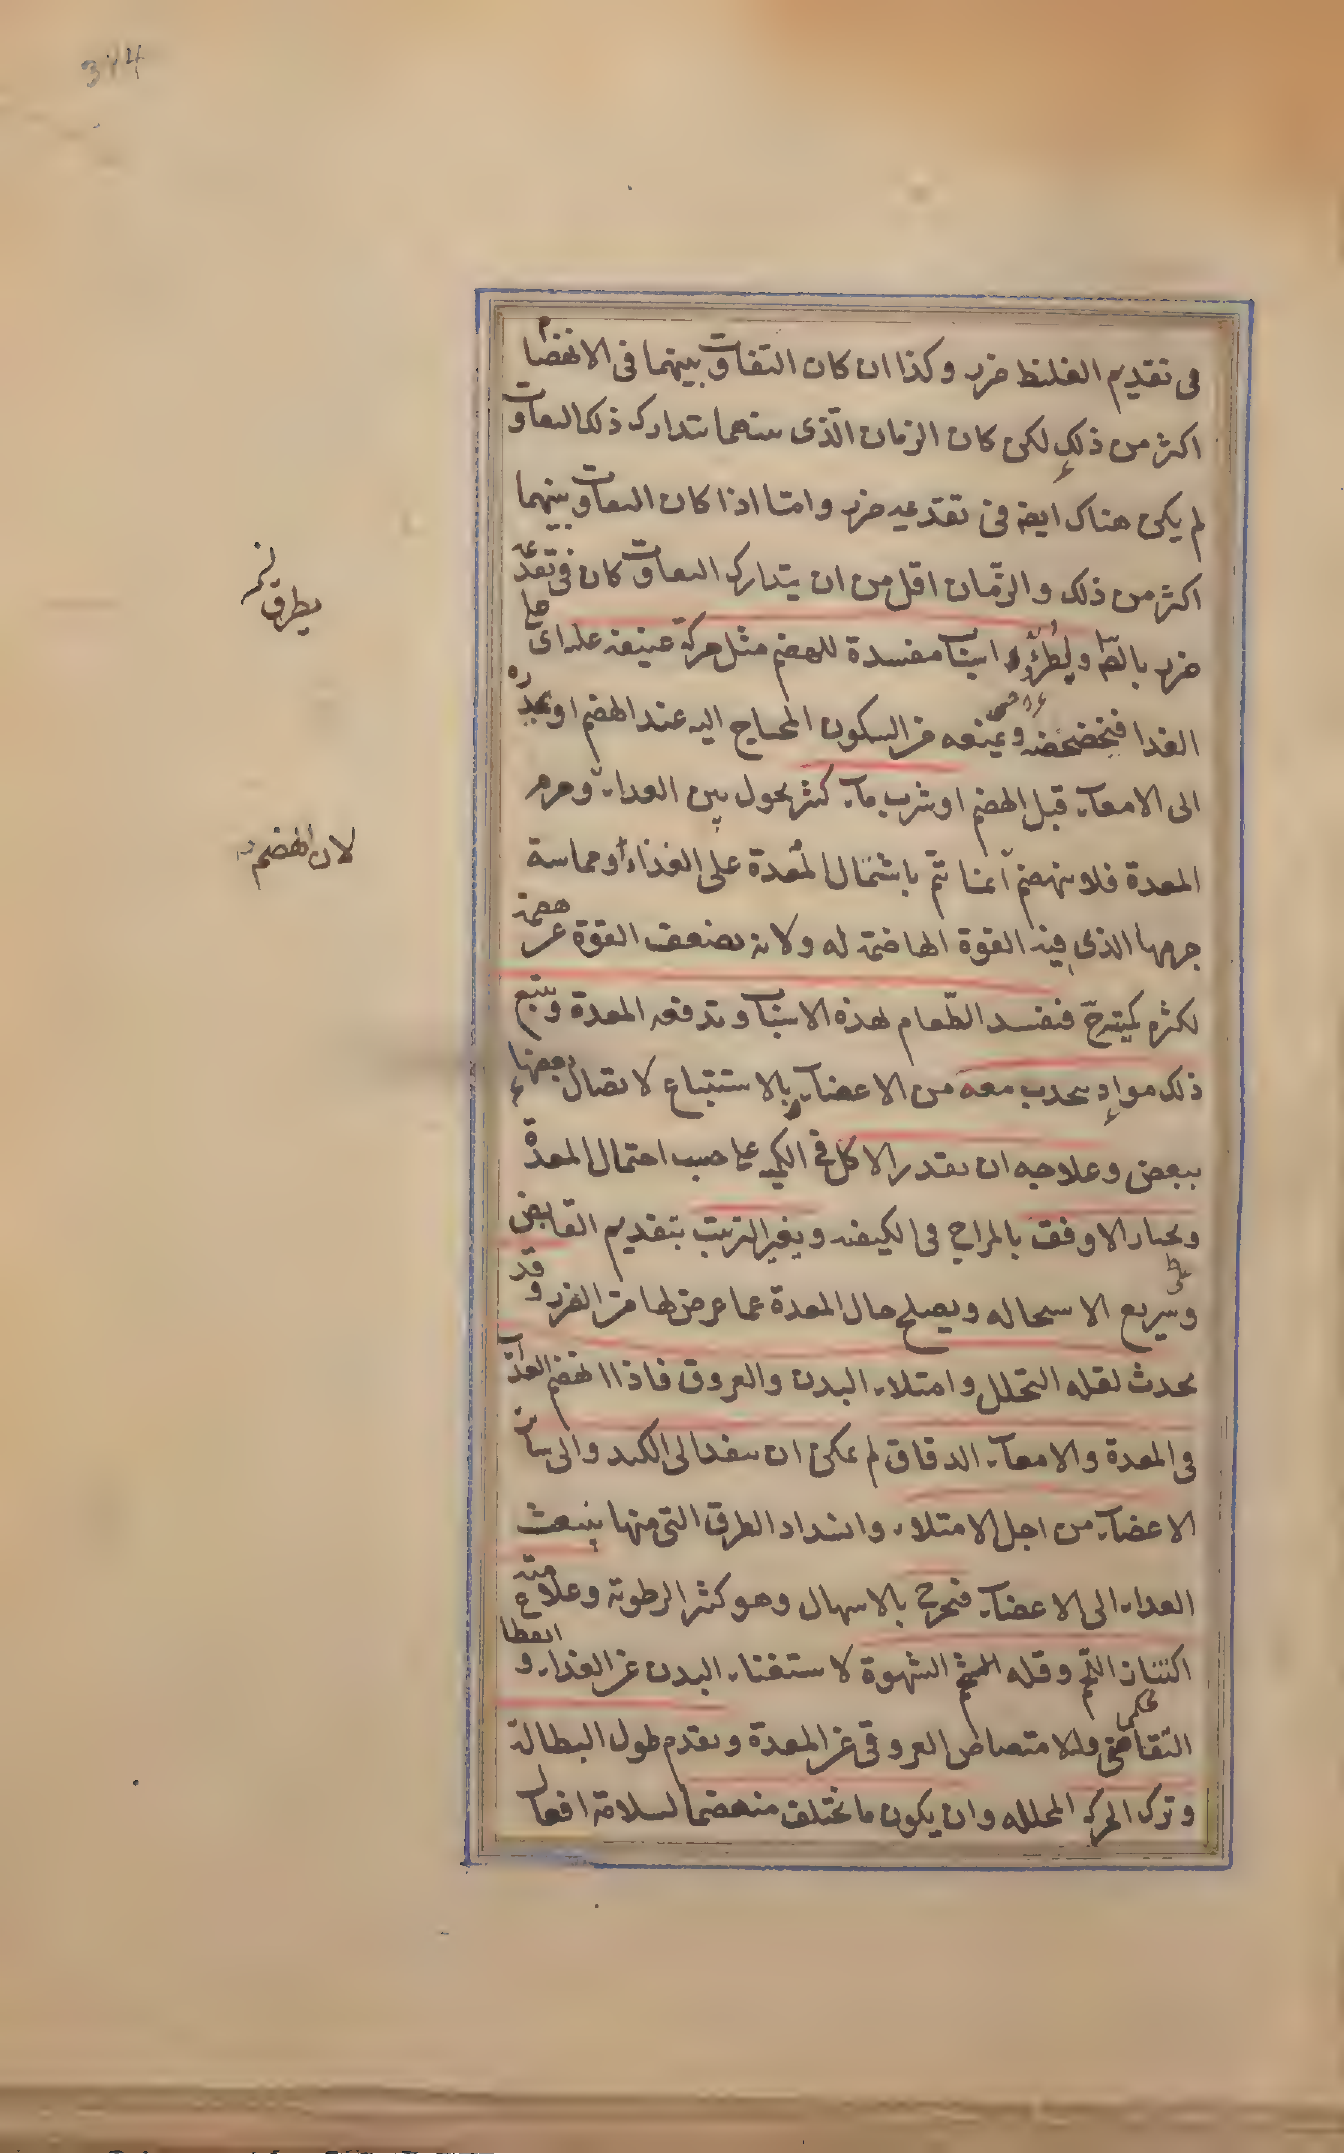 314
فى تقديم الغليظ ضرر وكذا ان كان التفاوت بينهما فى الانهضام
اكثر من ذلك لكن كان الزمان الذى بينهما يتدارك ذلك التفاوت
لم يكن هناك ايضا فى تقديمه ضرر وامتا اذا كان التفاوت بينهما
اكثر من ذلك والزمان اقل من ان يتدارك التفاوت كان فى تقديمه
ضرر بالضد ولطروء اسباب مفسدة للهضم مثل حركة عنيفة على اى
الغذا فيخضخضه ويمنعه من السكون المحتاج اليه عند الهضم او
الى الامعاء قبل الهضم او شرب ماء كثير يحول بين الغذاء وجرم
المعدة فلا ينهضم انما يتم باشتمال المعدة على الغذاء ومماسة
جرمها الذى فيه القوة الهاضمة له ولانه يضعف القوة عن هضمه
لكثرة كميته فيفسد الطعام لهذه الاسباب وتدفعه المعدة ويتبع
ذلك مواد تنحدب معه من الاعضاء بالاستتباع لاتصال بعضها
ببعض وعلاجه ان يقدر الاكل فى الكمية على حسب احتمال المعدة
ويختار الاوفق بالمزاج فى الكيفية ويغير الترتيب بتقديم القابض
على
وسريع الاستحالة ويصلح حال المعدة عما عرض لها من الضرر وقد
يحدث لقلة التحلل وامتلاء البدن والعروق فاذا انهضم الغذاء
فى المعدة والامعاء الدقاق لم يمكن ان ينفد الى الكبد والى سائر
الاعضاء من اجل الامتلاء وانسداد الطرق التى منها ينبعث
الغذاء الى الاعضاء فيخرج بالاسهال وهو كثير الرطوبة وعلامته
اكتناز اللحم وقلة الشهوة لاستغناء البدن عن الغذاء وانقطاع
التقاضى ولامتصاص العروق من المعدة وتقدم طول البطالة
وترك الحركة المحللة وان يكون ما يختلف منهضما لسلامة افعال
بطرق
لان الهضم